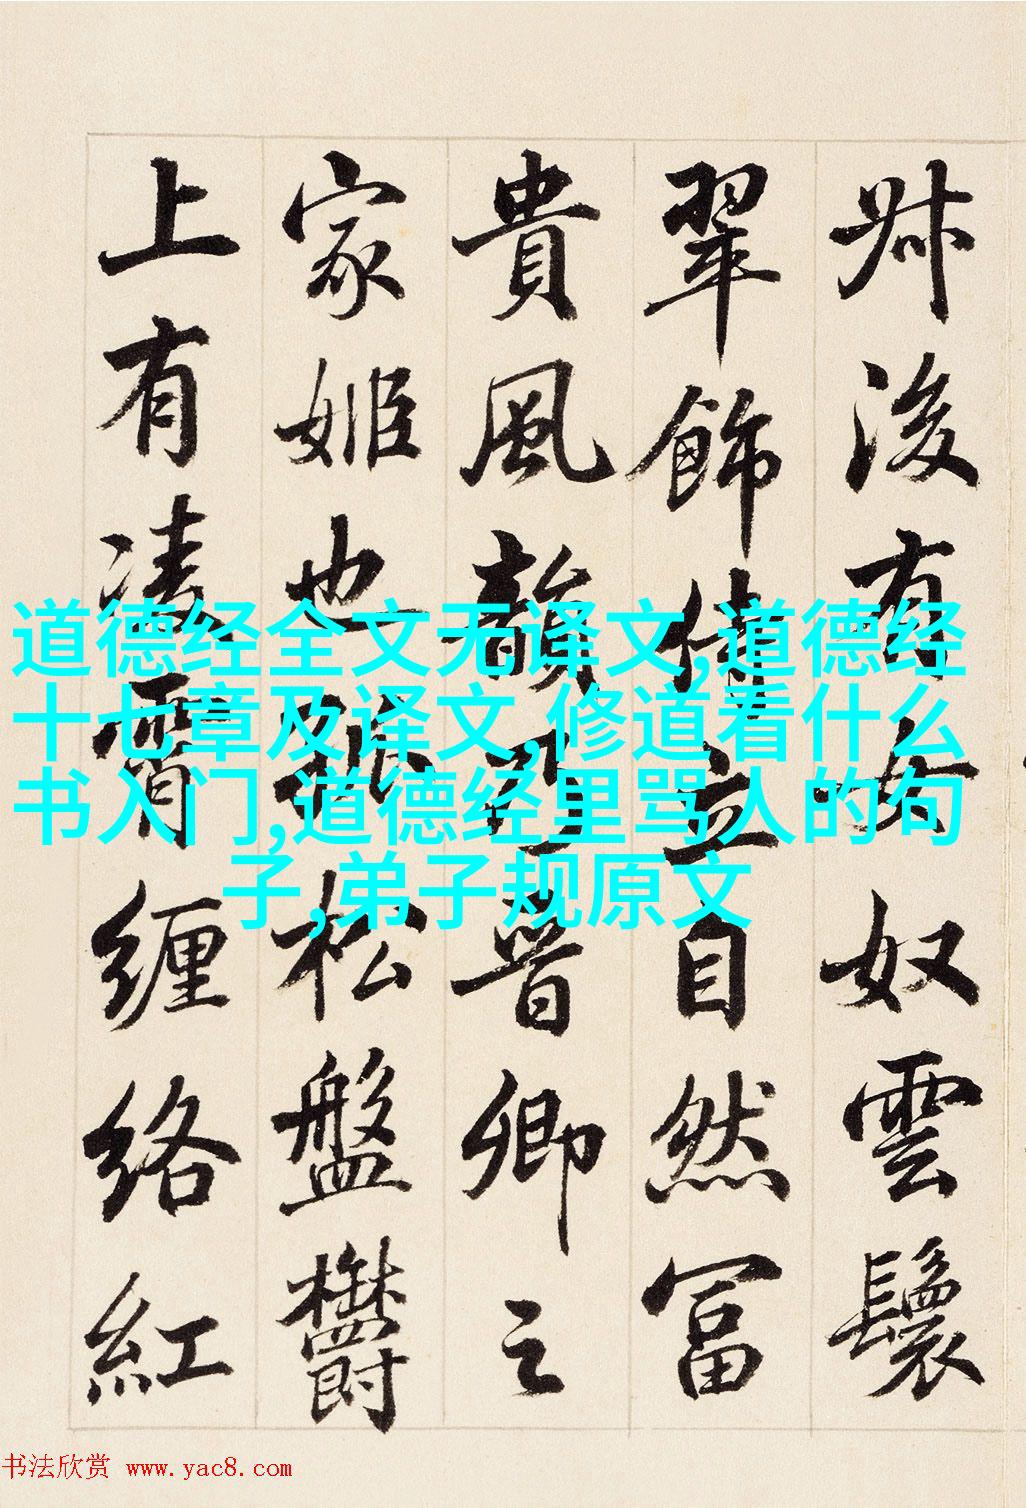 叔後有女奴雲鬟
翠飾侍立自然富
貴風韻乃晉卿之
家姬也孤松盤鬱
上有凌霄纏絡紅
道德经全文无译文,道德经
十七章及译文,修道看什么
书入门,道德经里骂人的句
子,弟子规原文
书法欣赏 www.yac8.com